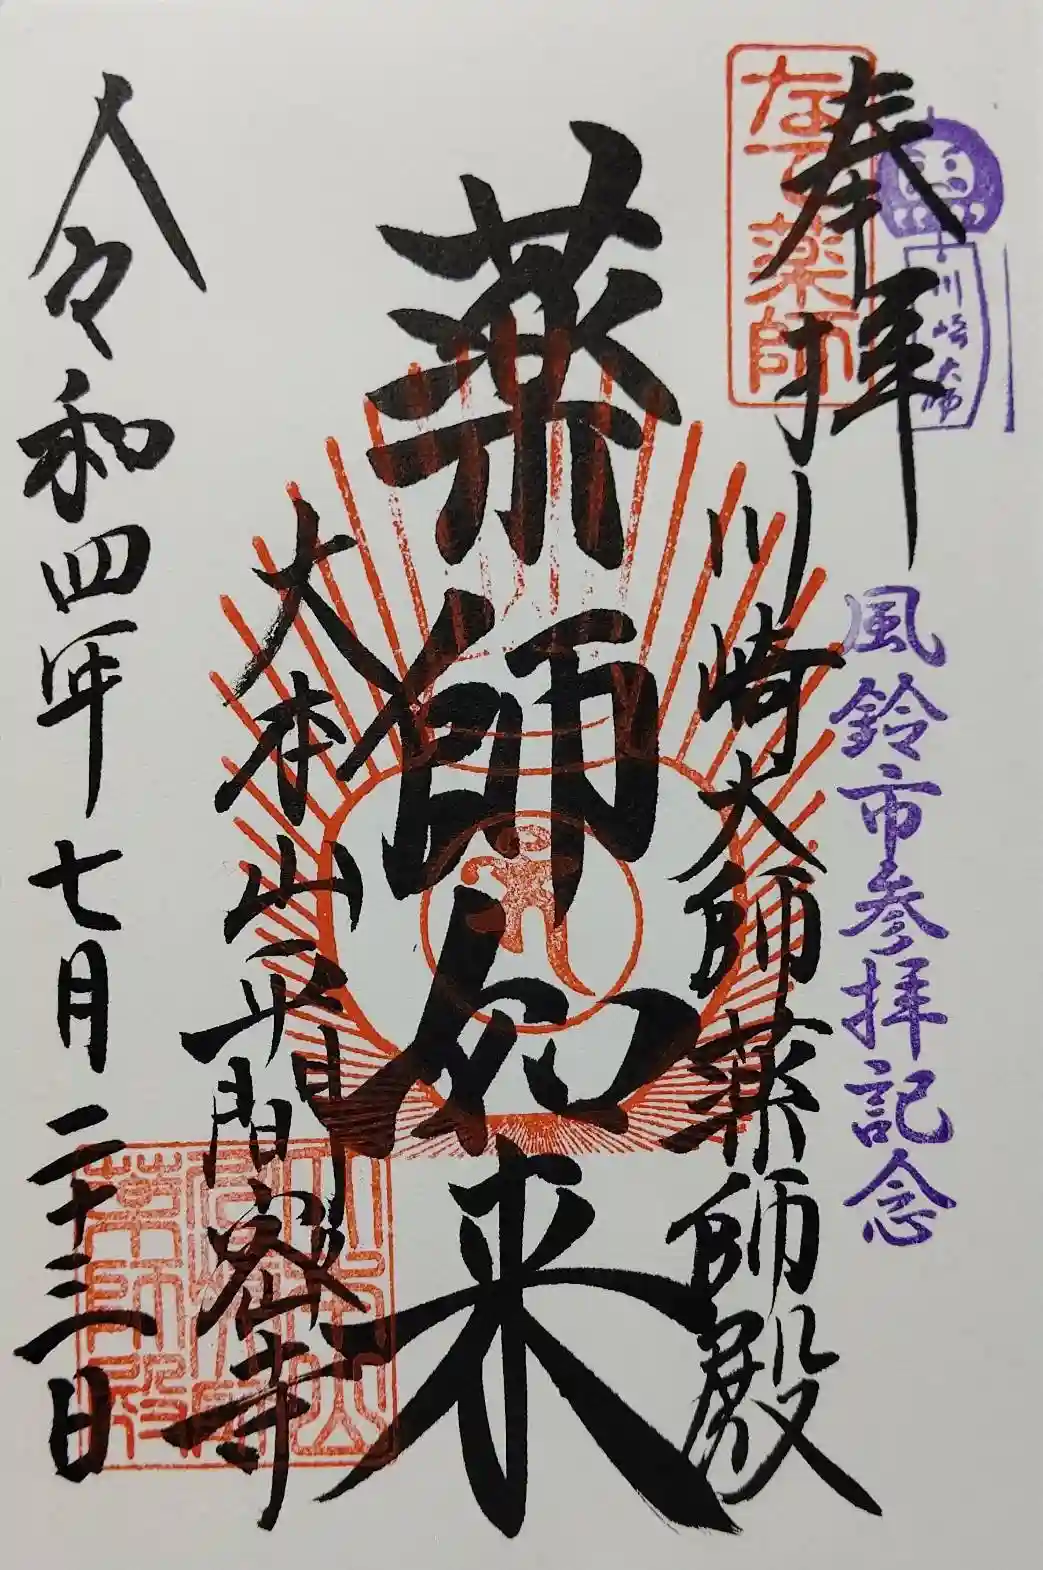 奉拝
なで薬師
川崎大師
風鈴市参拝記念
川崎大師薬師殿
薬師如来
大本山平間密寺
令和四年七月二十三日